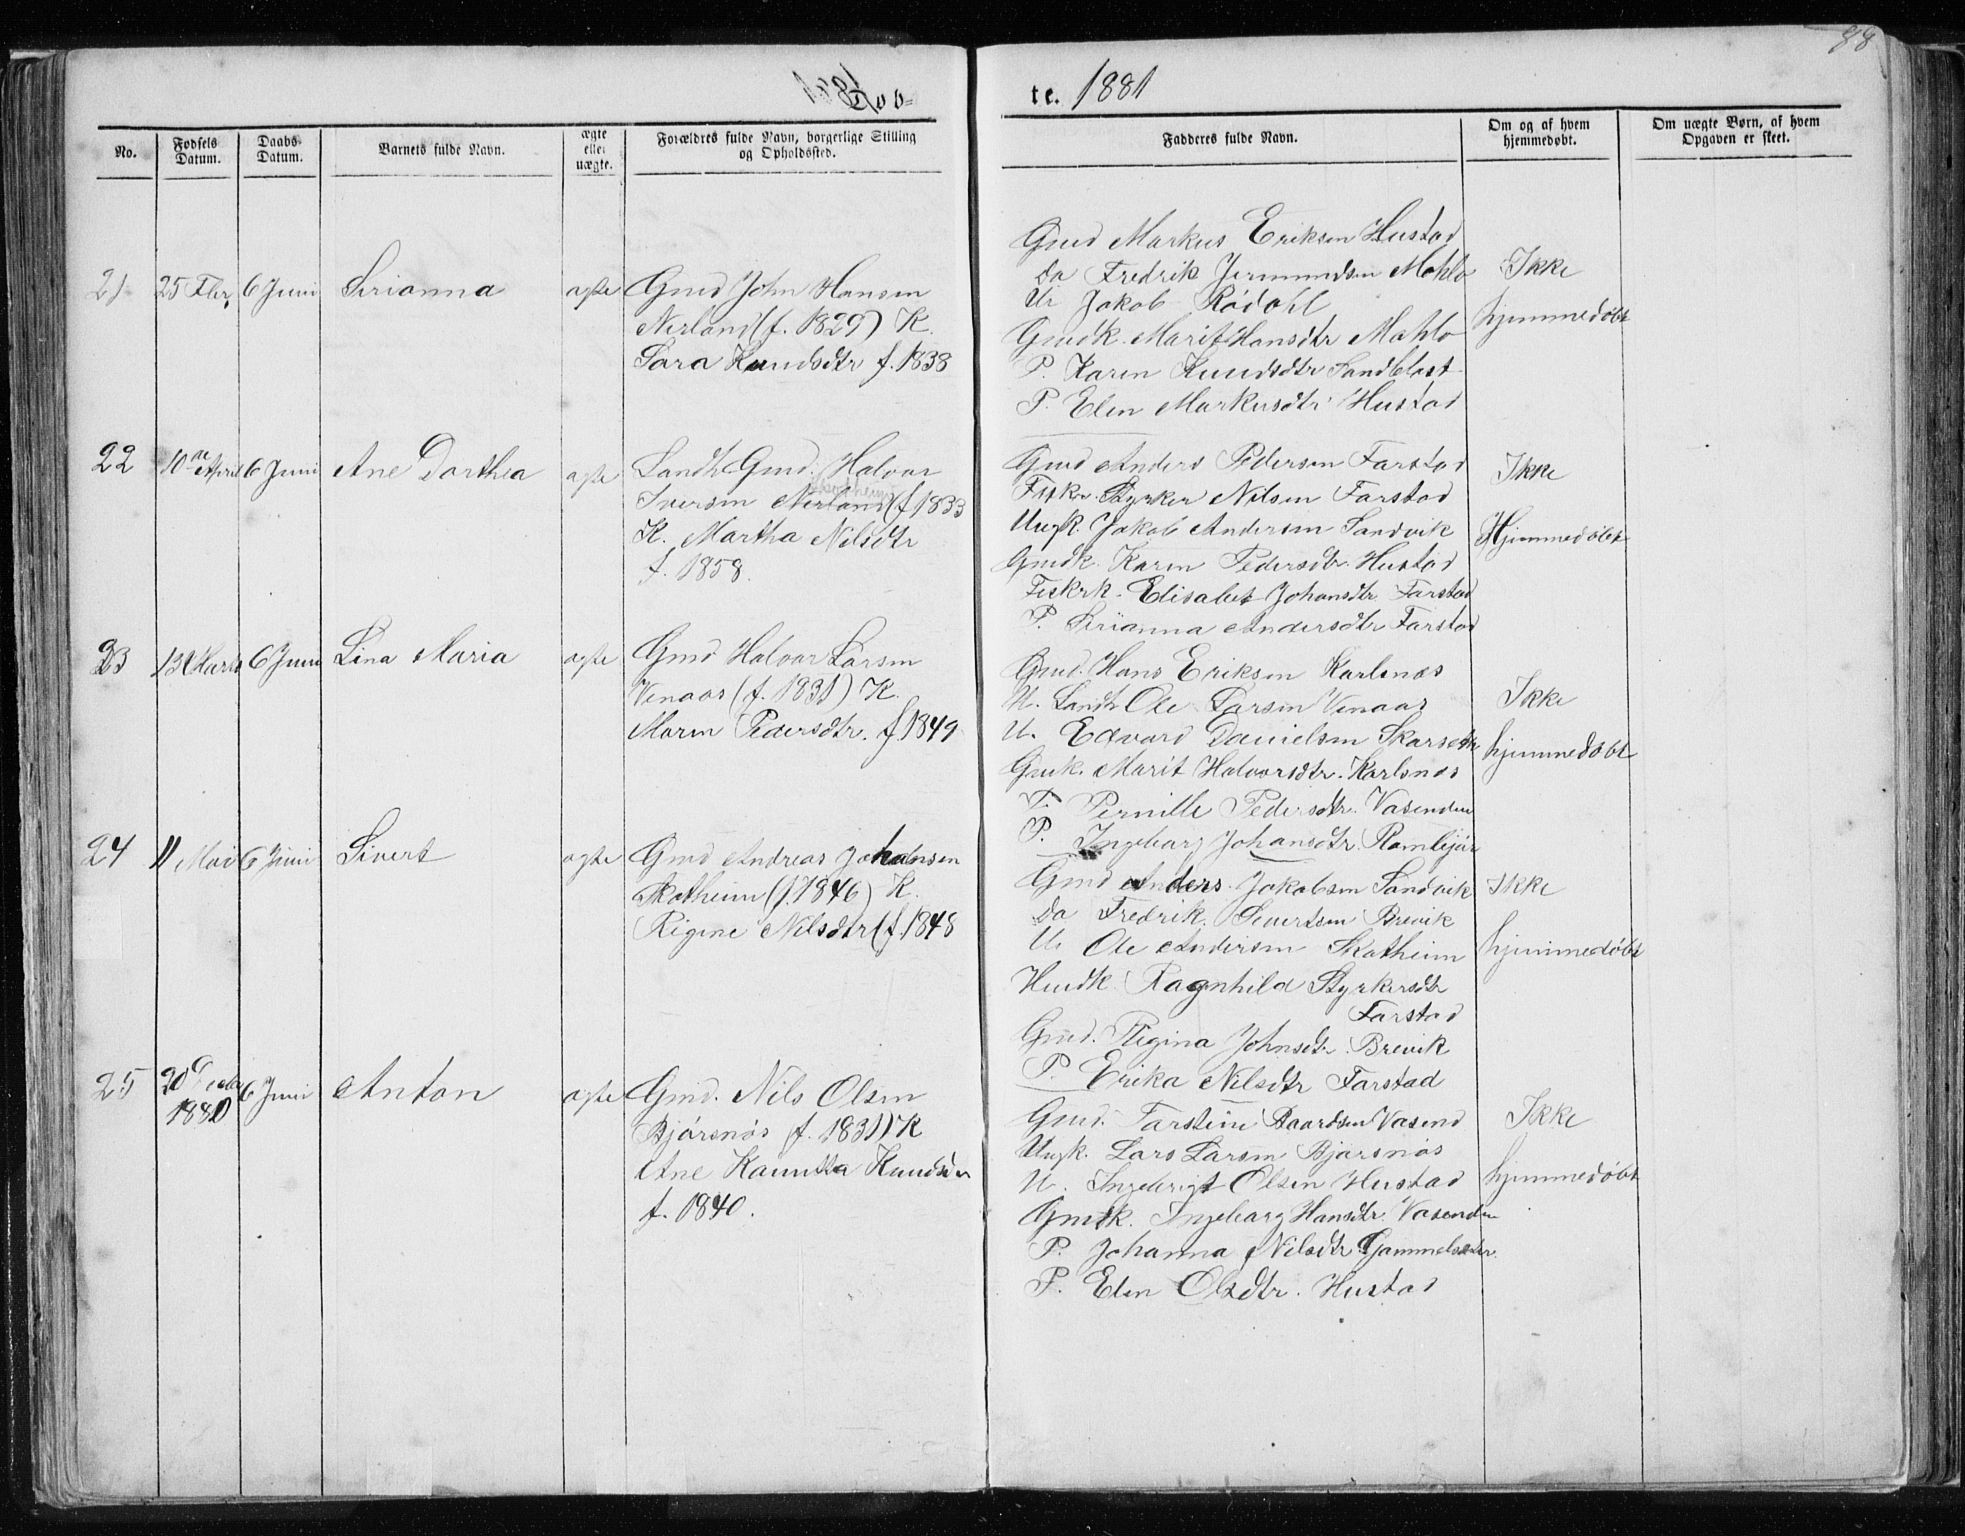 88
Døb=
te. 1881
No.
Fødsels Datum.
Daabs- Datum.
Barnets fulde Navn.
ægte eller uægte.
Forældres fulde Navn, borgerlige Stilling og Opholdssted.
Fadderes fulde Navn.
Om og af hvem hjemmedøbt.
Om uægte Børn, af hvem Opgaven er skeet.
21 25 Febr, 6 Juni Serianna ægte Gmd John Hansen
Nerland (f. 1829) K.
Sara Knudsdtr f. 1838
Gmd Markus Eriksen Hustad
Do Fredrik Jermundsen Mahlo
U. Jakob Rødahl
Gmdk. Marit Hansdtr Mahlo
P. Karen Knudsdtr Sandblost
P. Elen Markusdtr Hustad
Ikke
hjemmedøbt
22 10de April 6 Juni Ane Dorthea ægte Sandh Gmd. Halvor
Skotheim
Iversen Nerland (f 1833
K. Martha Nilsdtr
f. 1858.
Gmd Anders Pedersen Farstad
Fiskr. Styrker Nilsen Farstad
Ungk. Jakob Andersen Sandvik
Gmdk. Karen Pedersdtr Hustad
Fiskrk. Elisabet Johansdtr Farstad
P. Serianna Andersdtr Farstad
Ikke
Hjemmedøbt
23 13 Marts 6 Juni Lina Maria ægte Gmd Halvor Larsen
Venaas (f. 1831) K.
Maren Pedersdtr. f 1849
Gmd. Hans Eriksen Karlsnæs
U. Sandh Ole Larsen Venaas
U. Edvard Danielsen Skarseth
Gmk. Marit Halvorsdtr. Karlsnæs
P. Pernille Pedersdtr. Vasenden
P. Ingeborg Johansdtr
Ikke
hjemmedøbt
24 11 Mai 6 Juni Sivert ægte Gmd Andreas Johansen
Skotheim (f. 1846) K.
Rigine Nilsdtr (f. 1848
Gmd Anders Jakobsen Sandvik
Do Fredrik Sivertsen Brevik
U. Ole Andersen Skotheim
Hmdk. Ragnhild Styrkersdtr
Farstad
Gmd. Regina Johnsdtr. Brevik
P. Erika Nilsdtr Farstad
Ikke
hjemmedøbt
25 20 Decbr 1880 6 Juni Anton ægte Gmd. Nils Olsen
Bjørsnøs (f. 1831) K
Ane Kanutta Knudsdtr
f. 1840.
Gmd. Farstein Baardsen Vasend
Ungk. Lars Larsen Bjørsnøs
U. Ingebrigt Olsen Hustad
Gmdk. Ingeborg Hansdtr. Vasenden
P. Johanna Nilsdtr Gammelsæter
P. Elen Olsdtr. Hustad
Ikke
hjemmedøbt